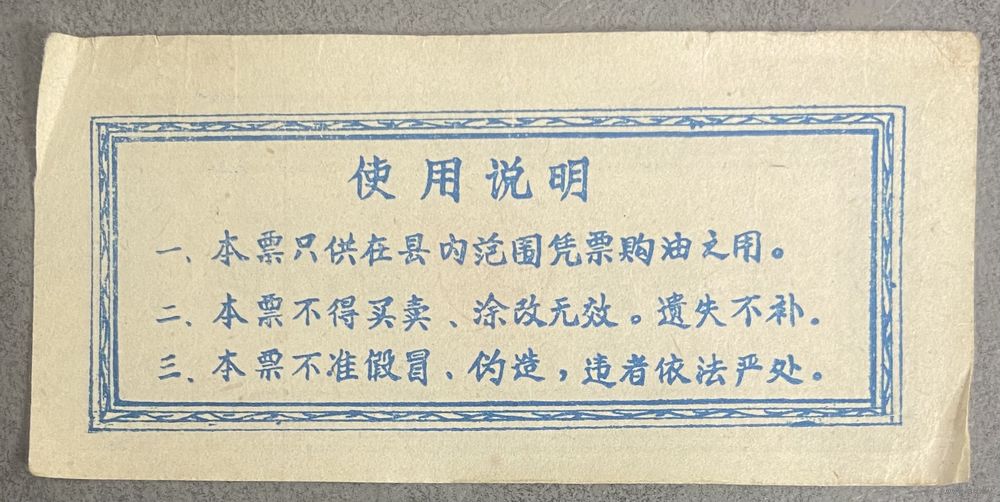 使用说明
一、本票只供在县内范围凭票购油之用。
二、本票不得买卖、涂改无效。遗失不补．
三、本票不准假冒、伪造，违者依法严处。